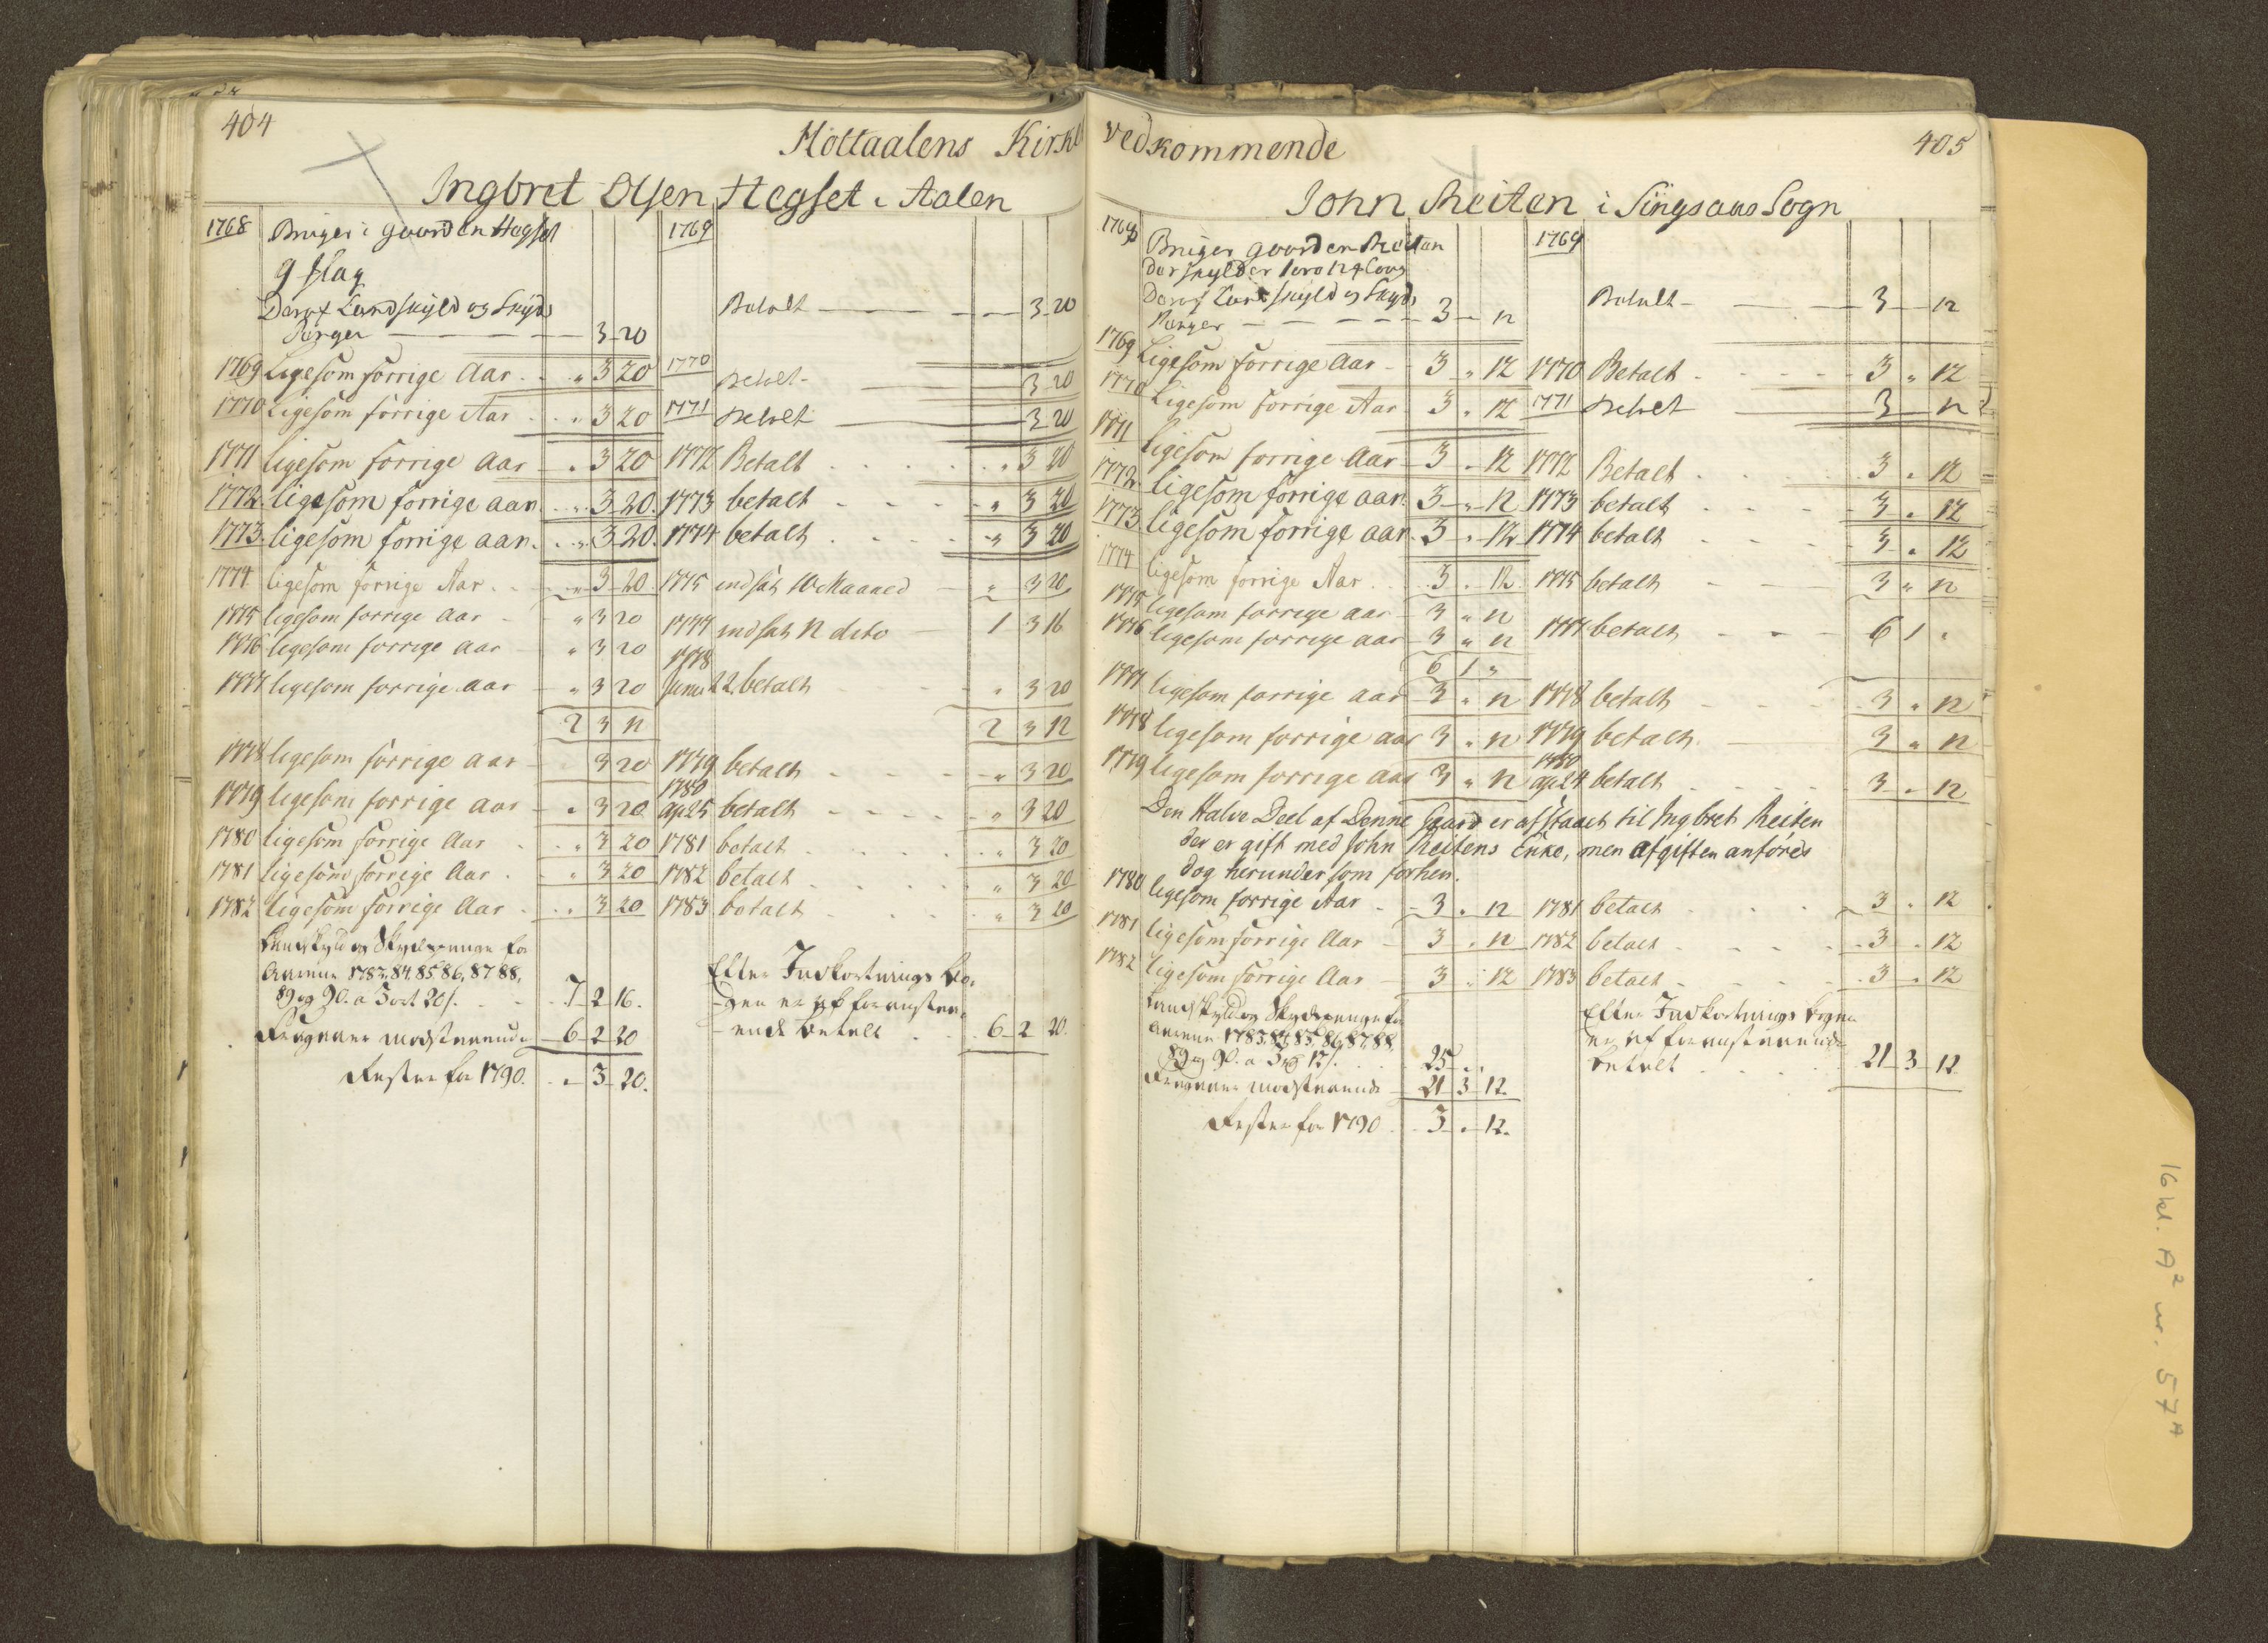 404
Holtaalens Kirke
Ingbret Olsen Hegset i Aalen
1768 Bruger i gaarden Hegset
9 slag
Deraf Landskyld og Skyds
Penger — 3 20
1769 Betalt — 3 20
1769 Ligesom forrige Aar „ 3 20 1770 Betalt 3 20
1770 Ligesom forrige Aar „ 3 20 1771 Betalt 3 20
1771 ligesom forrige Aar „ 3 20 1772 Betalt „ 3 20
1772 ligesom forrige aar „ 3 20 1773 betalt „ 3 20
1773 ligesom forrige aar „ 3 20 1774 betalt „ 3 20
1774 ligesom forrige Aar „ 3 20 1775 indsat 10 Maaned „ 3 20
1775 ligesom forrige aar „ 3 20 1777 indsat 12 dito 1 3 16
1776 ligesom forrige aar „ 3 20 1778
1777 ligesom forrige aar „ 3 20 22 betalt „ 3 20
2 3 12 2 3 12
1778 ligesom forrige aar 3 20 1779 betalt „ 3 20
1779 ligesom forrige aar „ 3 20 1780 ap 25 betalt „ 3 20
1780 ligesom forrige Aar „ 3 20 1781 betalt „ 3 20
1781 ligesom forrige Aar „ 3 20 1782 betalt „ 3 20
1782 ligesom forrige Aar „ 3 20 1783 betalt „ 3 20
Landskyld og Skydspenge for
Aarene 1783, 84, 85, 86, 87, 88,
89 og 90. a 3 ort 20 s. 7 2 16.
Fragaaer modstaaende 6 2 20
Rester for 1790. „ 3 20.
Efter Indkortnings Bo-
gen er af foranstaa-
ende betalt 6 2 20.
vedkommende
405
John Reiten i Singsaas Sogn
1768 Bruger gaarden Reitan
der skylder
Deraf Landskyld og Skyds
Penger — 3 „ 12
1769 Betalt — 3 — 12
1769 Ligesom forrige Aar 3 „ 12 1770 Betalt 3 „ 12
1770 Ligesom forrige Aar 3 „ 12 1771 Betalt 3 — 12
1771 ligesom forrige Aar 3 „ 12 1772 Betalt 3 „ 12
1772 ligesom forrige aar 3 „ 12 1773 betalt 3 „ 12
1773 ligesom forrige aar 3 „ 12 1774 betalt 3 „ 12
1774 ligesom forrige Aar 3 „ 12 1775 betalt 3 „ 12
1775 ligesom forrige aar 3 „ 12
1776 ligesom forrige aar 3 „ 12 1777 betalt 6 1 „
6 1 „
1777 ligesom forrige aar 3 „ 12 1778 betalt 3 „ 12
1778 ligesom forrige aar 3 „ 12 1779 betalt 3 „ 12
1779 ligesom forrige aar 3 „ 12 1780 ap 24 betalt 3 „ 12
Den Halve Deel af Denne Gaard er afstaaet til Ingbret Reiten
der er gift med John Reitens Enke, men Afgiften anføres
dog herunder som forhen.
1780 ligesom forrige Aar 3 „ 12 1781 betalt 3 „ 12
1781 ligesom forrige Aar 3 „ 12 1782 betalt 3 „ 12
1782 ligesom forrige Aar 3 „ 12 1783 betalt 3 „ 12
Landskyld og Skydspenge for
Aarene 1783, 84, 85, 86, 87, 88,
89 og 90. a 3 rd 12 s. 25 „ „
Fragaaer modstaaende 21 3 12.
Rester for 1790 3 „ 12.
Efter Indkortnings bogen
er af foranstaaende
betalt 21 3 12
16 kl. A² nr. 57A